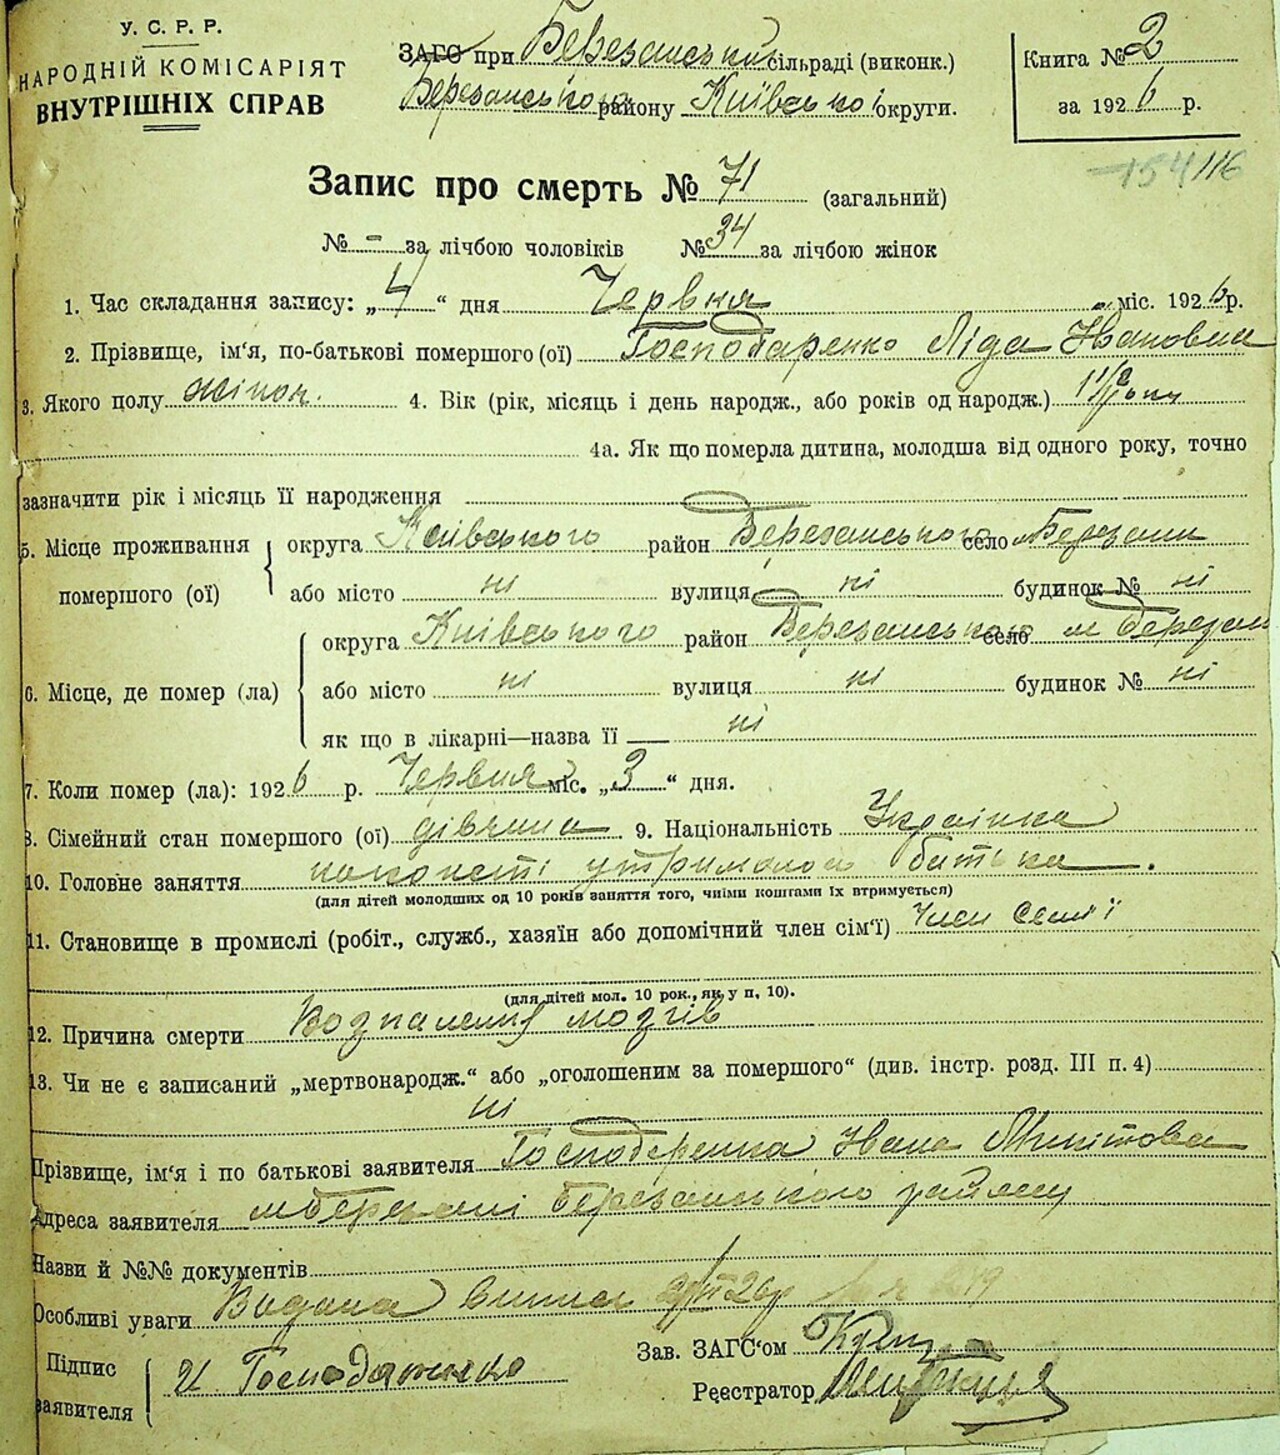 У. С. Р. Р.
НАРОДНІЙ КОМІСАРІЯТ
ВНУТРІШНІХ СПРАВ
ЗАГС при Березанський сільраді (виконк.)
Березанського району Київської округи.
Книга № 2
за 1926 р.
154 116
Запис про смерть № 71 (загальний)
№ - за лічбою чоловіків № 34 за лічбою жінок
1. Час складання запису: „4“ дня Червня міс. 1926 р.
2. Прізвище, ім‘я, по-батькові помершого (ої) Господаренко Ліда Івановна
3. Якого полу жіноч. 4. Вік (рік, місяць і день народж., або років од народж.) 1 1/2
4а. Як що померла дитина, молодша від одного року, точно
зазначити рік і місяць її народження
5. Місце проживання помершого (ої) округа Київського район Березанського село м Березань
або місто ні вулиця ні будинок № ні
6. Місце, де помер (ла) округа Київського район Березанського село м Березань
або місто ні вулиця ні будинок № ні
як що в лікарні—назва її ні
7. Коли помер (ла): 1926 р. Червня міс. „3“ дня.
8. Сімейний стан помершого (ої) дівчина 9. Національність Українка
10. Головне заняття батька
(для дітей молодших од 10 років заняття того, чиїми коштами їх втримується)
11. Становище в промислі (робіт., служб., хазяїн або допомічний член сім‘ї) Член Семьї
(для дітей мол. 10 рок., як у п. 10).
12. Причина смерти Возпаления мозгів
13. Чи не є записаний „мертвонародж.“ або „оголошеним за помершого“ (див. інстр. розд. III п. 4)
ні
Прізвище, ім‘я і по батькові заявителя Господаренка Ивана Микитова
Адреса заявителя м Березані Березанського району
Назви й №№ документів
Особливі уваги Видана виписка
Підпис заявителя И Господаренко
Зав. ЗАГС‘ом
Реєстратор